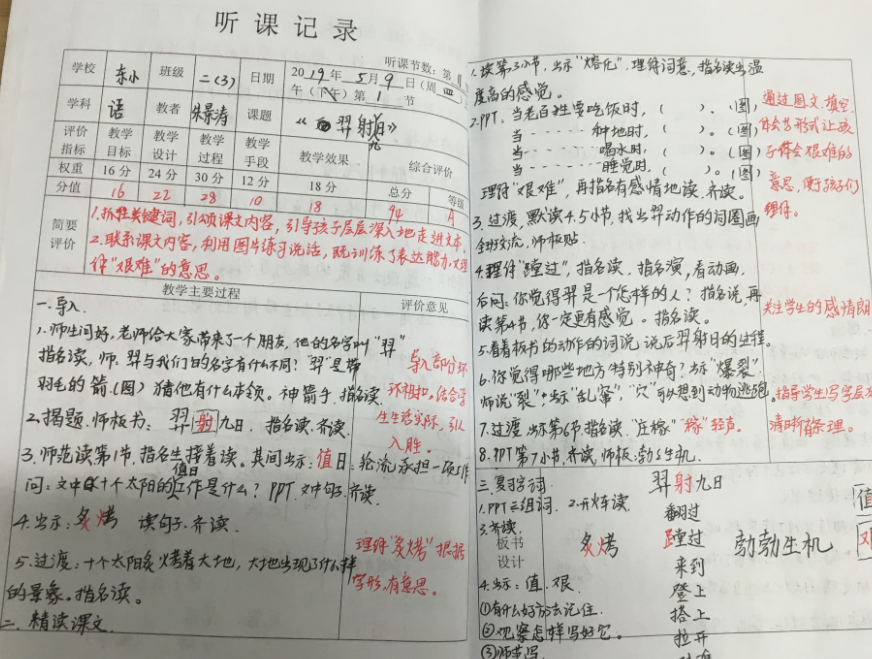 听课记录
听课节数：第
学校 东小 班级 二(3) 日期 2019年5月9日(周四)
午(下午)第1节
学科 语 教者 朱景涛 课题 《羿射九日》
评价指标 教学目标 教学设计 教学过程 教学手段 教学效果 综合评价
权重 16分 24分 30分 12分 18分 总分 等级
分值 16 22 28 10 18 94 A
简要评价
1.抓住关键词，引领课文内容，引导孩子层层深入地走进文本。
2.联系课文内容，利用图片练习说话，既训练了表达能力，又理
解"艰难"的意思。
教学主要过程 评价意见
一.导入.
1.师生问好，老师给大家带来了一个朋友，他的名字叫"羿"
指名读，师：羿与我们的名字有什么不同？"羿"是带
羽毛的箭(图)猜他有什么本领。神箭手.指名读.
2.揭题.师板书：羿射九日，指名读.齐读.
3.师范读第1节，指名生接着读。其间出示：值日：轮流承担一项工作
问：文中的十个太阳的值日工作是什么？PPT.文中句子.齐读.
4.出示：炙烤 读句子.齐读.
5.过渡：十个太阳炙烤着大地，大地出现了什么样
的景象。指名读。
二.精读课文.
导入部分环
环相扣.结合学
生生活实际，引人
入胜。
理解"炙烤"根据
字形，有意思。
1.读第3小节，出示"熔化".理解词意，指名读出温
度高的感觉。
2.PPT.当老百姓要吃饭时，( )。(图)
当……种地时，( )。(图)
当……喝水时，( )。(图)
当……睡觉时，( )。(图)
理解"艰难"，再指名有感情地读.齐读。
3.过渡，默读4.5小节，找出羿动作的词圈画
全班交流.师板贴.
4.理解"蹚过"，指名读.指名演，看动画.
后问：你觉得羿是一个怎样的人？指名说，再
读第4节，你一定更有感觉。指名读。
5.看着板书的动作的词说说后羿射日的过程。
6.你觉得哪些地方特别神奇？出示"爆裂"
师说"裂"，出示"乱窜"，"穴"可以想到动物逃跑.
7.过渡.出示第6节指名读.「庄稼」"稼"轻声.
8.PPT第7小节.齐读.师板：勃勃生机.
通过图文.填空
的形式让孩
子体会艰难的
意思，便于孩子们
理解。
关注学生的感情朗
指导学生写字层次
清晰有条理。
三.复习字词. 羿射九日
1.PPT.组词. 2.开火车读.
3.齐读.
板书设计
翻过
炙烤 蹚过 勃勃生机
来到
4.出示：值.艰. 登上
①有什么好方法记住. 搭上
②观察怎样写好它。 拉开
③师范写.
值